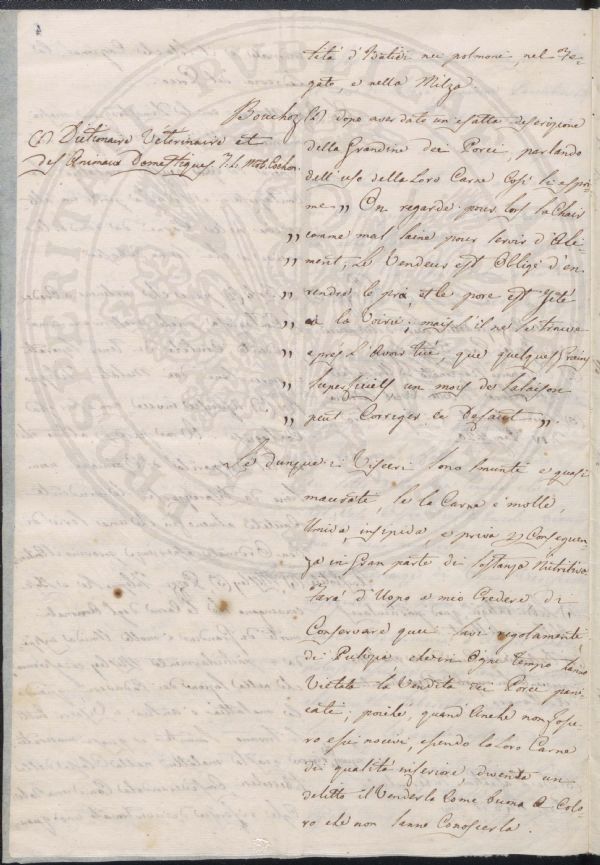 4
tità d'Batidi nei polmoni, nel Fe-
gato, e nella Milza.
Bouchoz (2) dopo aver dato un esatta descrizione
(2) Dictionaire Véterinaire et
des Animaux Domestiques T. 4. Mot. Cochon.
della Grandine dei Porci, parlando
dell'uso della Loro Carne Così si espri-
me „ On regarde pour lors la Chair
„ comme mal saine pour servir d'Ali-
„ ment, Le Vendeur est Obligé d'en
„ rendre le prix, et le porc est Jeté
„ à la Voirie; mais s'il ne se trouve
„ après l'Avoir tué, que quelques Grains
„ superficiels un mois de salaison
„ peut Corriger ce Defaut „.
Se dunque i Visceri sono smunti e quasi
macerati, se la Carne è molle,
Umida, insipida, e priva in Conseguen-
za in Gran parte di sostanza Nutritiva
sarà d'Uopo a mio Credere di
Conservare quei savi regolamenti
di Pulizia che in Ogni tempo hanno
Vietata la Vendita dei Porci pani-
cati; poiché, quand'Anche non fosse-
ro essi nocivi, essendo la Loro Carne
di qualità inferiore, diventa un
delitto il Venderla Come buona a Colo-
ro che non sanno Conoscerla.